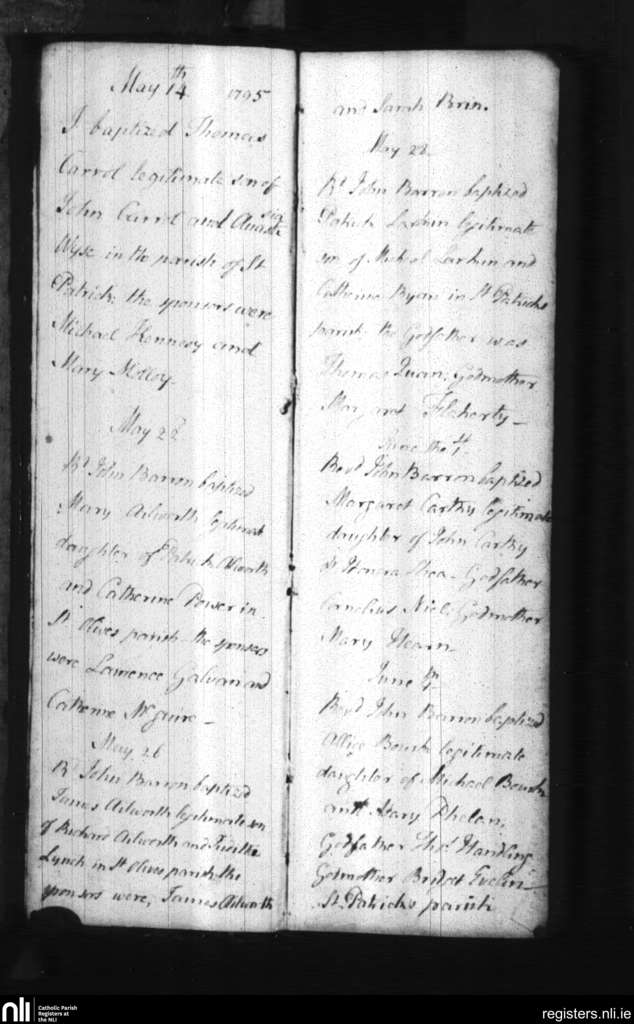 May 14th 1795
I baptized Thomas
Carrol legitimate son of
John Carrol and
Wyse in the parish of St
Patrick: the sponsors were
Michael Kennesy and
Mary Molloy-
May 22
Rd John Barron baptized
Mary Ailworth legitimat
daughter of Patrick Ailworth
and Catherine Power in
St Olives parish - the sponsors
were Lawrence Galvan and
Catherine McGuire -
May 26
Rd John Barron baptized
James Ailworth legitimate son
of Richard Ailworth and Judith
Lynch in St Olives parish, the
sponsors were, James Ailworth
and Sarah Brin.
May 28
Rd John Barron baptized
Patrick Larkin legitimate
son of Michael Larkin and
Catherine Ryan in St Patricks
parish. the Godfather was
Thomas Quan, Godmother
Margaret Flaherty -
June the
Revd John Barron baptized
Margaret Carthy legitimate
daughter of John Carthy
& Honora Shea - Godfather
Cornelius Niel. Godmother
Mary Hearn -
June
Revd John Barron baptized
Allice Bourk legitimate
daughter of Michael Bourk
and Mary Phelan,
Godfather Thos Handling
Godmother Bridget
St Patricks parish
nli
Catholic Parish
Registers at
the NLI
registers.nli.ie